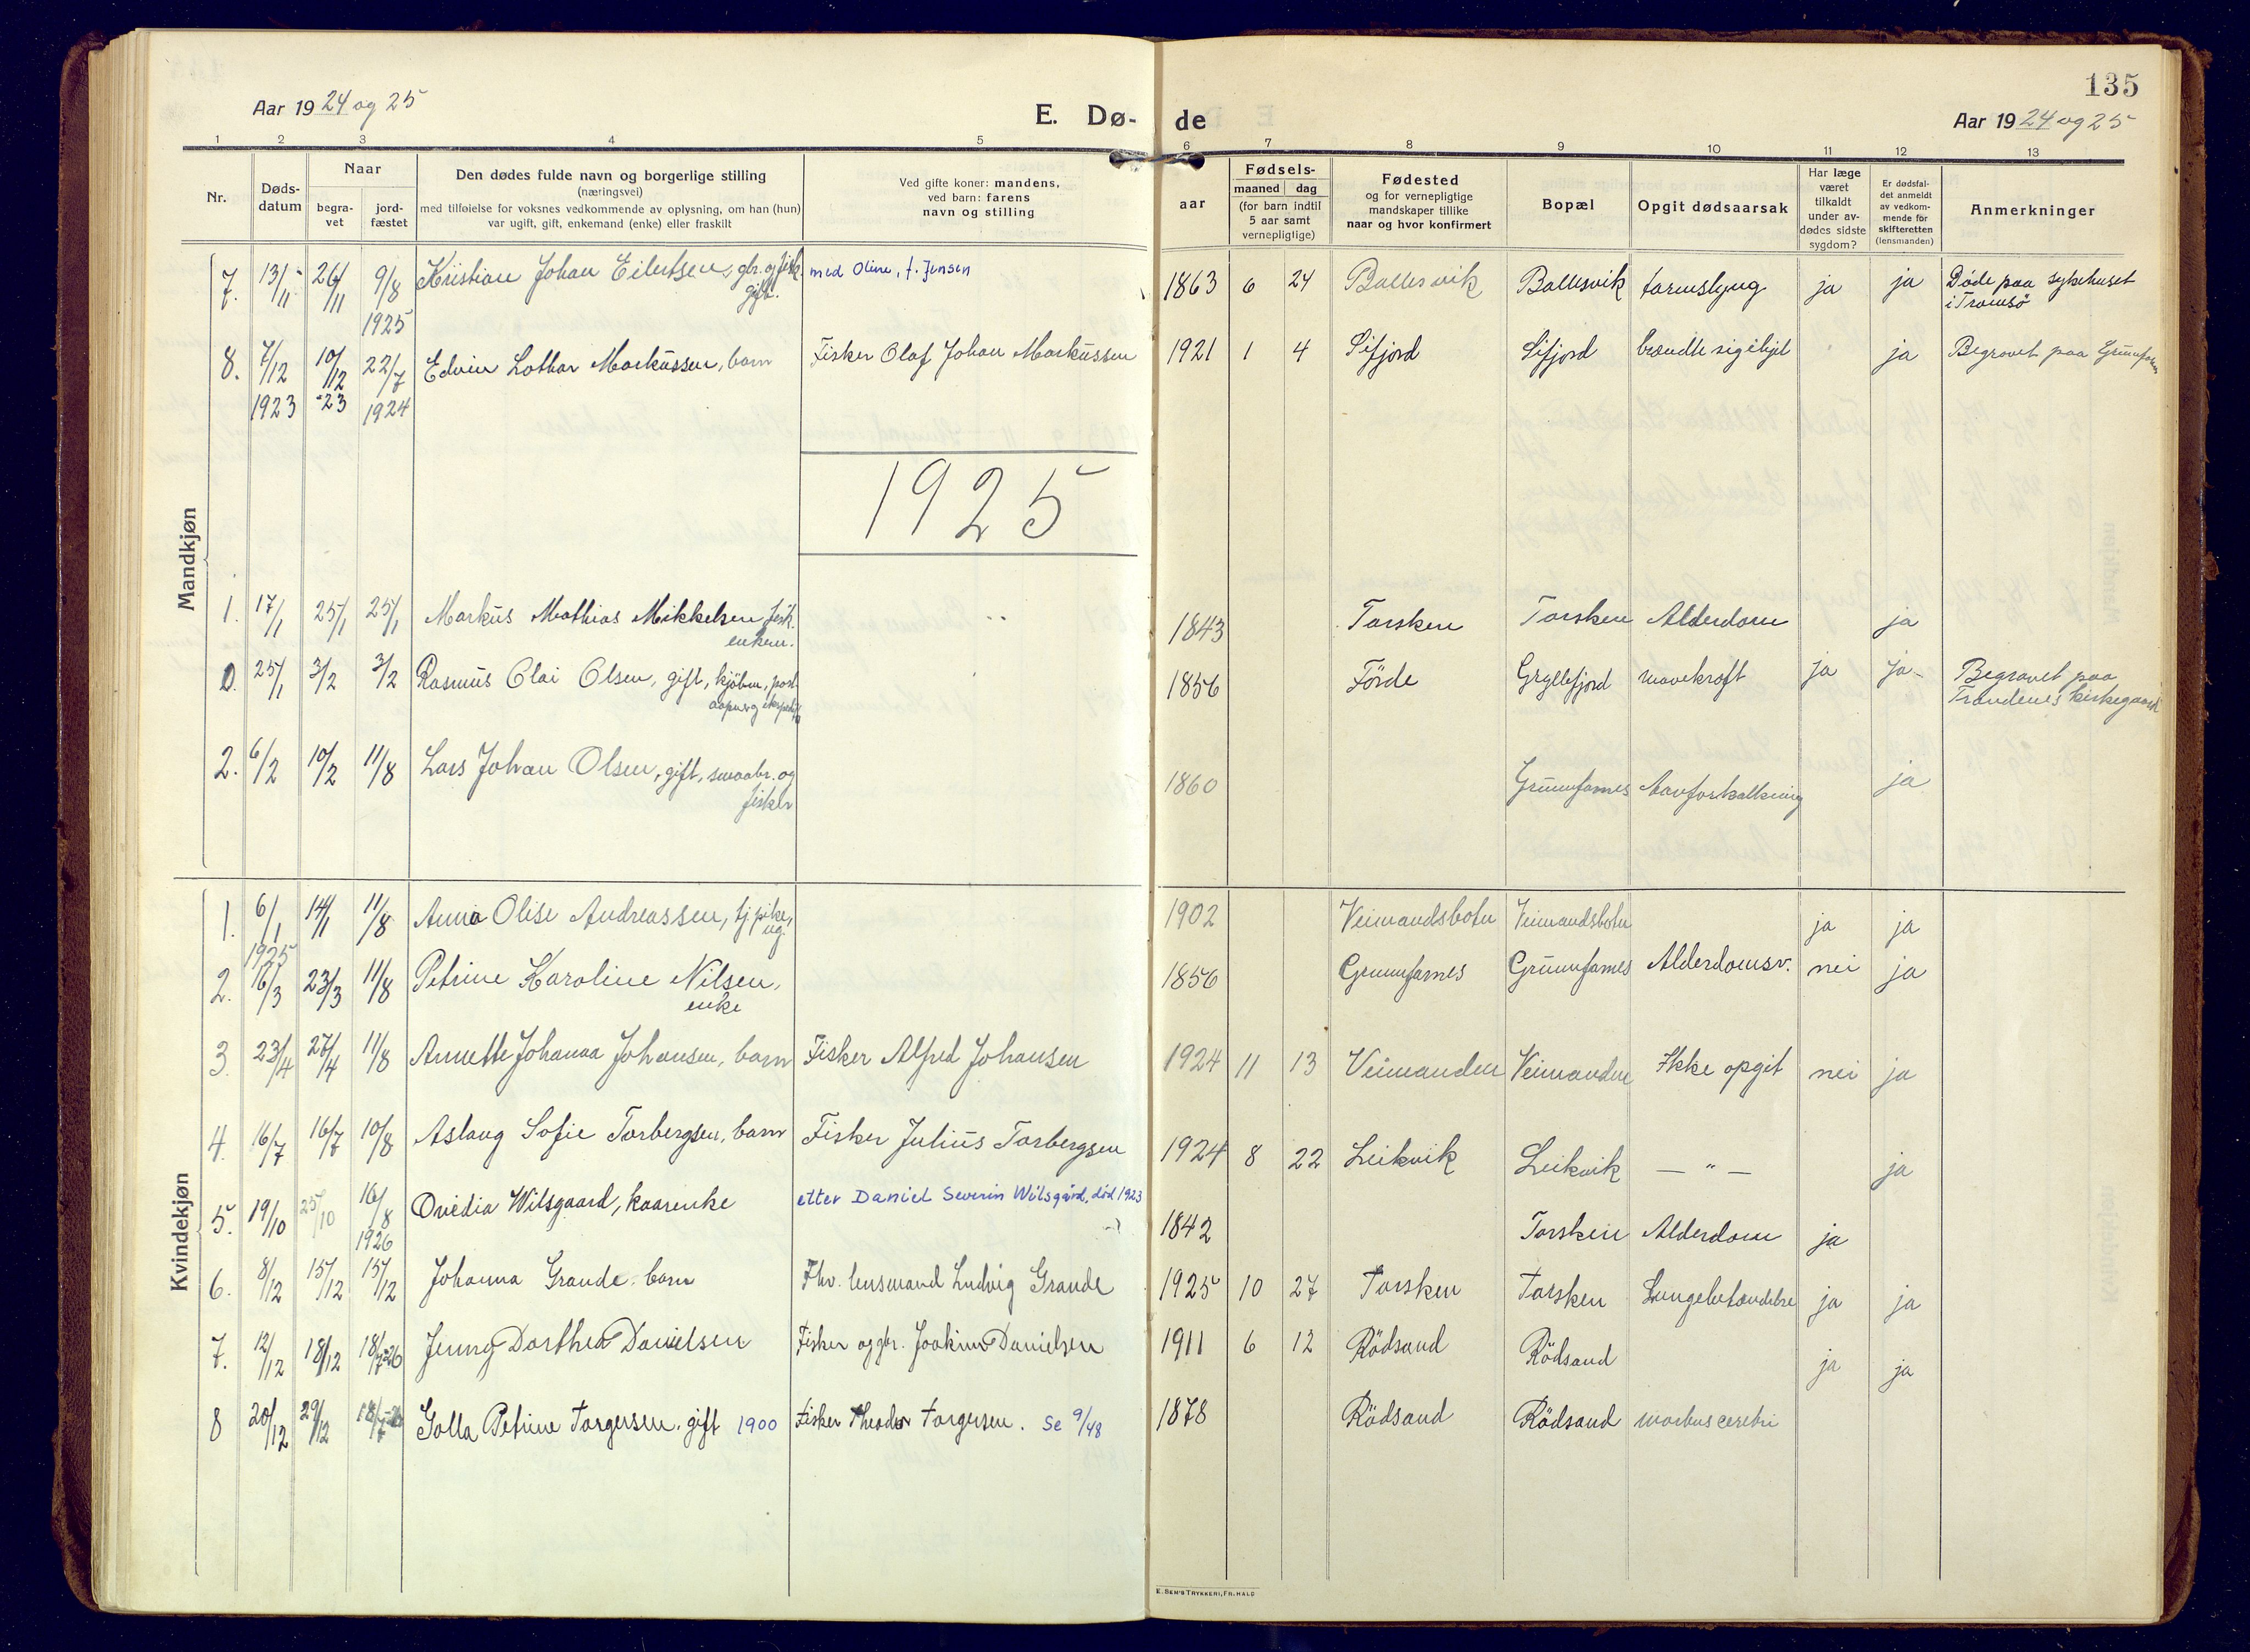 135
Aar 1924 og 25
E. Dø-
de
Aar 1924 og 25
1 2 3 4 5 6 7 8 9 10 11 12 13
Nr.
Døds-
datum
Naar
begra-
vet
jord-
fæstet
Den dødes fulde navn og borgerlige stilling
(næringsvei)
med tilføielse for voksnes vedkommende av oplysning, om han (hun)
var ugift, gift, enkemand (enke) eller fraskilt
Ved gifte koner: mandens,
ved barn: farens
navn og stilling
aar
Fødsels-
maaned dag
(for barn indtil
5 aar samt
vernepligtige)
Fødested
og for vernepligtige
mandskaper tillike
naar og hvor konfirmert
Bopæl
Opgit dødsaarsak
Har læge
været
tilkaldt
under av-
dødes sidste
sygdom?
Er dødsfal-
det anmeldt
av vedkom-
mende for
skifteretten
(lensmanden)
Anmerkninger
Mandkjøn
7. 13/11 26/11 9/8 1925 Kristian Johan Eilertsen, gbr. og fisk. gift. med Oline, f. Jensen 1863 6 24 Ballesvik Ballesvik tarmslyng ja ja Døde paa sykehuset
i Tromsø
8. 7/12 1923 10/12 -23 22/7 1924 Edvin Lothar Markussen, barn Fisker Olaf Johan Markussen 1921 1 4 Sifjord Sifjord brændte sig ihjel ja Begravet paa Grunfarnes
1925
1. 17/1 25/1 25/1 Markus Mathias Mikkelsen, fisk. enkem. 1843 Torsken Torsken Alderdom ja
0. 25/1 3/2 3/2 Rasmus Olai Olsen, gift, kjøbm, post-
aapn. og eksped. 1856 Förde Gryllefjord mavekræft ja ja Begravet paa
Trondenes kirkegaard
2. 6/2 10/2 11/8 Lars Johan Olsen, gift, smaabr. og
fisker 1860 Grunnfarnes Aareforkalkning ja
Kvindekjøn
1. 6/1 1925 14/1 11/8 Anna Olise Andreassen, tj pike, ug. 1902 Veimandsbotn Veimandsbotn ja ja
2. 16/3 23/3 11/8 Petrine Karoline Nilsen,
enke 1856 Grunnfarnes Grunnfarnes Alderdomsv. nei ja
3. 23/4 27/4 11/8 Annette Johanna Johansen, barn Fisker Alfred Johansen 1924 11 13 Veimanden Veimanden Ikke opgit nei ja
4. 16/7 16/7 10/8 Aslaug Sofie Torbergsen, barn Fisker Julius Torbergsen 1924 8 22 Leikvik Leikvik — " — ja
5. 19/10 25/10 16/8 1926 Ovedia Wilsgaard, kaarenke etter Daniel Severin Wilsgård, død 1923 1842 Torsken Alderdom ja
6. 8/12 15/12 15/12 Johanna Grande, barn Fhv. lensmand Ludvig Grande 1925 10 27 Torsken Torsken Lungebetændelse ja ja
7. 12/12 18/12 18/7-26 Jenny Dorthea Danielsen Fisker og gbr. Joakim Danielsen 1911 6 12 Rödsand Rödsand ja ja
8 20/12 29/12 18/7-26 Golla Petrine Torgersen, gift 1900 Fisker Theodor Torgersen. Se 9/48 1878 Rödsand Rödsand morbus
E. SEM'S TRYKKERI, FR. HALD